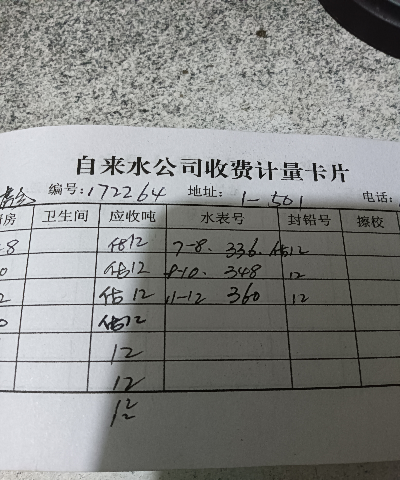 自来水公司收费计量卡片
编号:172264 地址: 1-501 电话:
房 卫生间 应收吨 水表号 封铅号 擦校
8 估12 7-8. 336. 估12
0 估12 9-10. 348 12
2 估12 11-12 360 12
0 估12
12
12
12